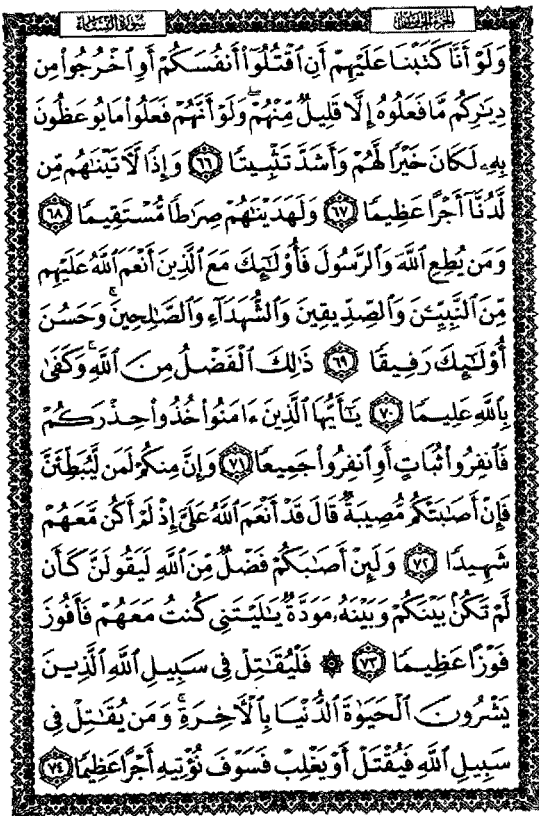 الجزء الخامس
سورة النساء
وَلَوْ أَنَّا كَتَبْنَا عَلَيْهِمْ أَنِ ٱقْتُلُوٓا۟ أَنفُسَكُمْ أَوِ ٱخْرُجُوا۟ مِن
دِيَٰرِكُم مَّا فَعَلُوهُ إِلَّا قَلِيلٌ مِّنْهُمْ ۖ وَلَوْ أَنَّهُمْ فَعَلُوا۟ مَا يُوعَظُونَ
بِهِۦ لَكَانَ خَيْرًا لَّهُمْ وَأَشَدَّ تَثْبِيتًا ٦٦ وَإِذًا لَّءَاتَيْنَٰهُم مِّن
لَّدُنَّآ أَجْرًا عَظِيمًا ٦٧ وَلَهَدَيْنَٰهُمْ صِرَٰطًا مُّسْتَقِيمًا ٦٨
وَمَن يُطِعِ ٱللَّهَ وَٱلرَّسُولَ فَأُو۟لَٰٓئِكَ مَعَ ٱلَّذِينَ أَنْعَمَ ٱللَّهُ عَلَيْهِم
مِّنَ ٱلنَّبِيِّـۧنَ وَٱلصِّدِّيقِينَ وَٱلشُّهَدَآءِ وَٱلصَّٰلِحِينَ ۚ وَحَسُنَ
أُو۟لَٰٓئِكَ رَفِيقًا ٦٩ ذَٰلِكَ ٱلْفَضْلُ مِنَ ٱللَّهِ ۚ وَكَفَىٰ
بِٱللَّهِ عَلِيمًا ٧٠ يَٰٓأَيُّهَا ٱلَّذِينَ ءَامَنُوا۟ خُذُوا۟ حِذْرَكُمْ
فَٱنفِرُوا۟ ثُبَاتٍ أَوِ ٱنفِرُوا۟ جَمِيعًا ٧١ وَإِنَّ مِنكُمْ لَمَن لَّيُبَطِّئَنَّ
فَإِنْ أَصَٰبَتْكُم مُّصِيبَةٌ قَالَ قَدْ أَنْعَمَ ٱللَّهُ عَلَىَّ إِذْ لَمْ أَكُن مَّعَهُمْ
شَهِيدًا ٧٢ وَلَئِنْ أَصَٰبَكُمْ فَضْلٌ مِّنَ ٱللَّهِ لَيَقُولَنَّ كَأَن
لَّمْ تَكُنۢ بَيْنَكُمْ وَبَيْنَهُۥ مَوَدَّةٌ يَٰلَيْتَنِى كُنتُ مَعَهُمْ فَأَفُوزَ
فَوْزًا عَظِيمًا ٧٣ ۞ فَلْيُقَٰتِلْ فِى سَبِيلِ ٱللَّهِ ٱلَّذِينَ
يَشْرُونَ ٱلْحَيَوٰةَ ٱلدُّنْيَا بِٱلْءَاخِرَةِ ۚ وَمَن يُقَٰتِلْ فِى
سَبِيلِ ٱللَّهِ فَيُقْتَلْ أَوْ يَغْلِبْ فَسَوْفَ نُؤْتِيهِ أَجْرًا عَظِيمًا ٧٤